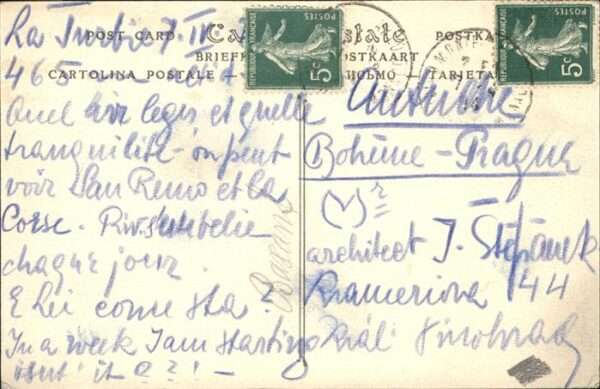 POST CARD
Carte Postale
POSTKAART
CARTOLINA POSTALE
TARJETA
REPUBLIQUE FRANÇAISE
POSTES
5c
REPUBLIQUE FRANÇAISE
POSTES
5c
La Turbie 7 IV
465
Quel air leger et quelle
tranquilité - on peut
voir San Remo et la
Corse. Riv. s'embelie
chaque jour.
E Lei come sta?
In a week I am starting
isnt' it?! -
Autriche
Bohême - Prague
architect J. Štěpánek
Krameriova 44
Král Vinohrady